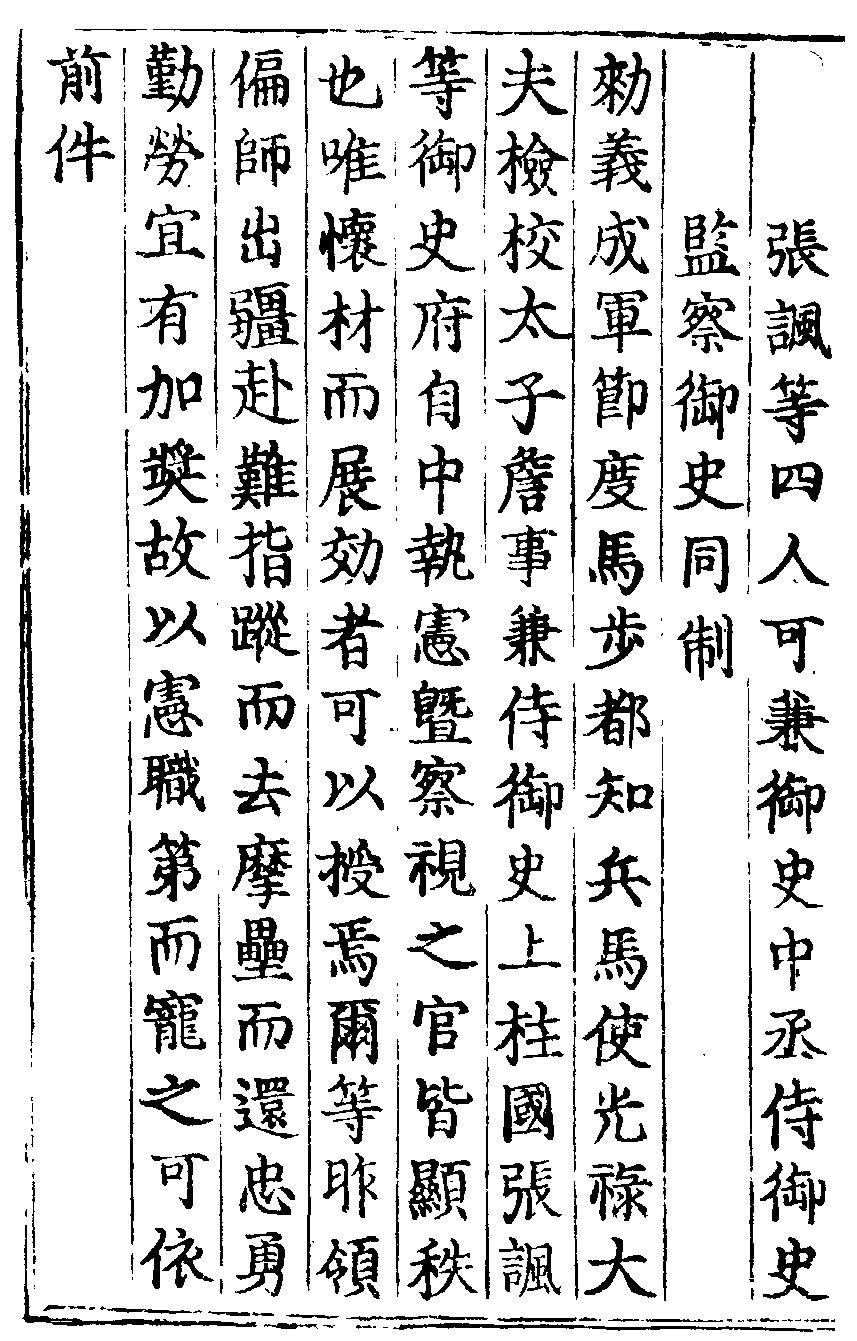 張諷等四人可兼御史中丞侍御史
監察御史同制
勑義成軍節度馬步都知兵馬使光祿大
夫檢校太子詹事兼侍御史上柱國張諷
等御史府自中執憲曁察視之官皆顯秩
也唯懷材而展効者可以授焉爾等昨領
偏師出疆赴難指蹤而去摩壘而還忠勇
勤勞宜有加奬故以憲職第而寵之可依
前件